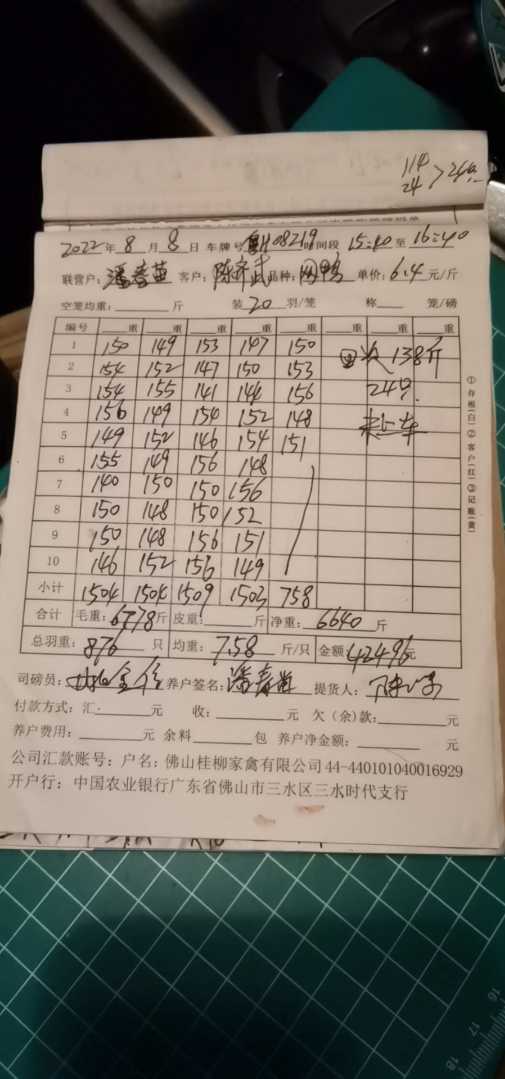 114
24 > 24只
2022年8月8日 车牌号 粤H08219 时间段 15:40至16:40
联营户:潘春苗 客户:陈齐武 品种: 鸭 单价:6.4元/斤
空笼均重:____斤 装20羽/笼 称____笼/磅
编号 ____重 ____重 ____重 ____重 ____重 ____重 ____重 ____重
1 150 149 153 147 150 回收138斤
2 154 152 147 150 153 24只
3 154 155 141 144 156 未上车
4 156 149 154 152 148
5 149 152 146 154 151
6 155 149 156 148
7 140 150 150 156
8 150 148 150 152
9 150 148 156 151
10 146 152 156 149
小计 1504 1504 1509 1503 758
合计 毛重:6778斤 皮重:____斤 净重:6640斤
总羽重:876只 均重:7.58斤/只 金额:42496元
司磅员: 养户签名:潘春苗 提货人:
付款方式:汇·____元 收:____元 欠(余)款:____元
养户费用:____元 余料____包 养户净金额:____元
公司汇款账号:户名:佛山桂柳家禽有限公司 44-440101040016929
开户行:中国农业银行广东省佛山市三水区三水时代支行
①存根(白)②客户(红)③记账(黄)